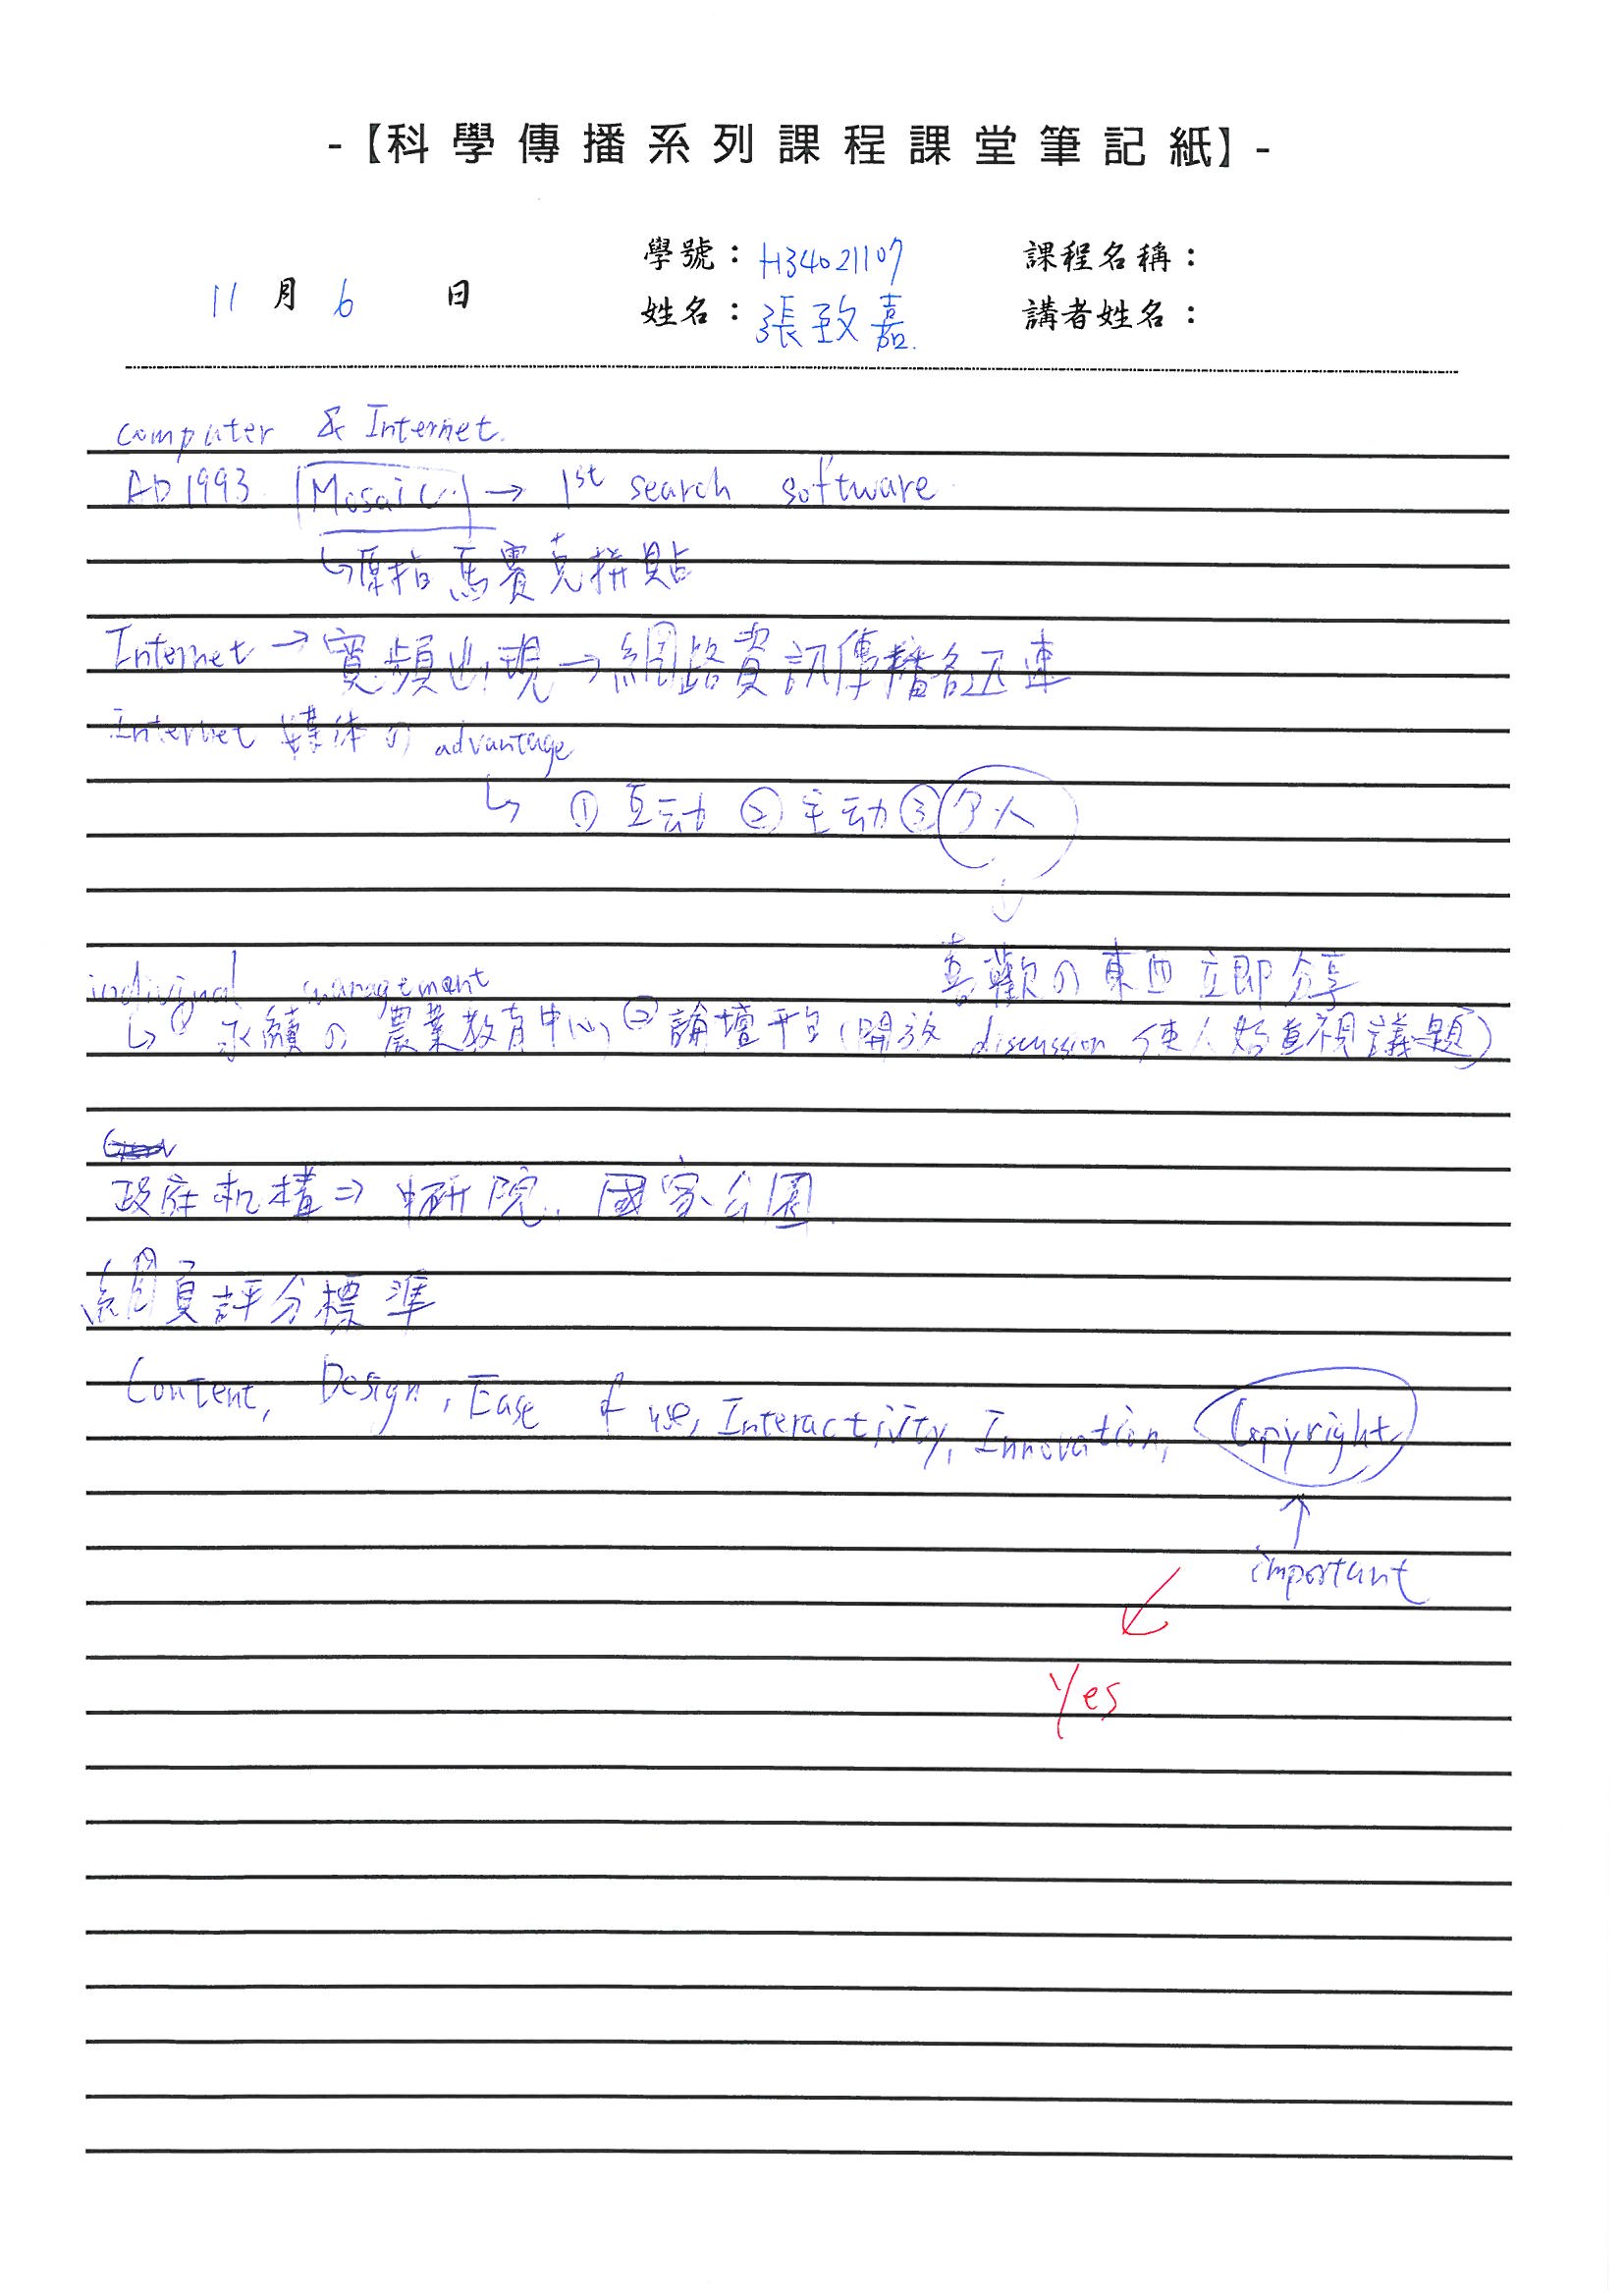 -【科學傳播系列課程課堂筆記紙】-
學號：H34021107 課程名稱：
11 月 6 日
姓名：張致嘉 講者姓名：
computer & Internet.
AD 1993 Mosaic → 1st search software
↳原指馬賽克拼貼
Internet → 寬頻出現 → 網路資訊傳播名迅速
Internet 媒体の advantage
↳ ① 互动 ② 主动 ③ 个人
↓
喜歡の東西立即分享
indivijual management
↳ ① 永續の農業教育中心 ② 論壇平台(開放 discussion 使人始重視議題)
政府机構 ⇒ 中研院、國家公園
網頁評分標準
Content, Design, Ease of use, Interactivity, Innovation, Copyright
↑
important
↙
Yes